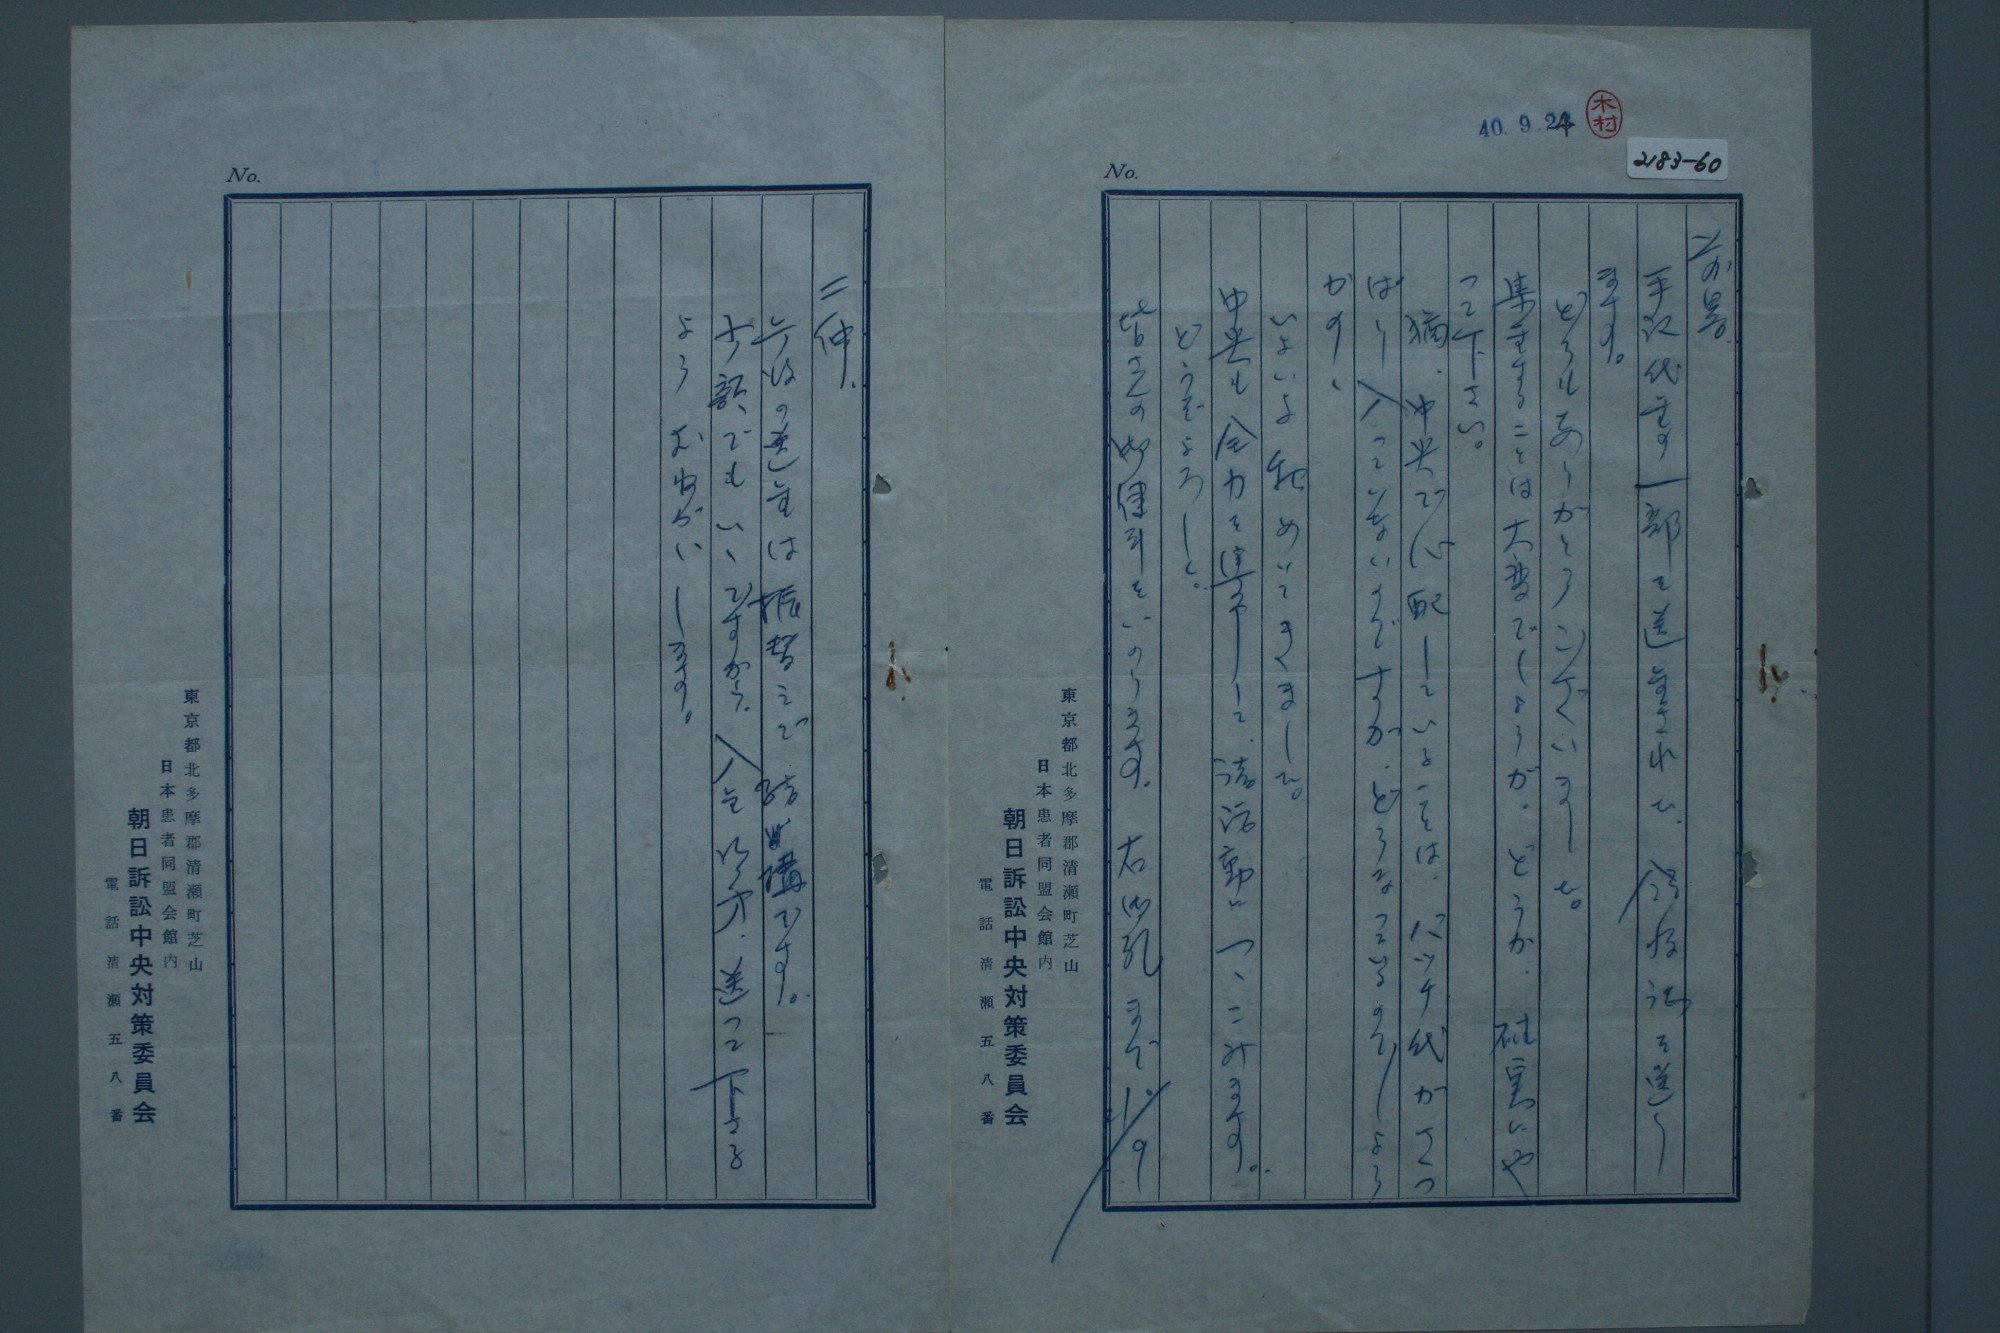 40.9.24
木村
2183-60
No.
前略
手記代金の一部を送金され、領収証を送り
ます。
どうもありがとうございました。
集金することは大変でしょうが、どうか、確実にや
って下さい。
猶、中央で心配していることは、バッチ代がさっ
ぱり入ってこないのですが、どうなっているのでしょう
か。
いよいよ秋めいてきました。
中央も全力を 活動につっこみます。
どうぞよろしく。
皆さんの御健斗をいのります。 右御礼まで
21/9
東京都北多摩郡清瀬町芝山
日本患者同盟会館内
朝日訴訟中央対策委員会
電話清瀬五八番
No.
二伸、
今後の送金は振替えで結構です。
少額でもいいですから、入金次第、送って下さる
ようおねがいします。
東京都北多摩郡清瀬町芝山
日本患者同盟会館内
朝日訴訟中央対策委員会
電話清瀬五八番